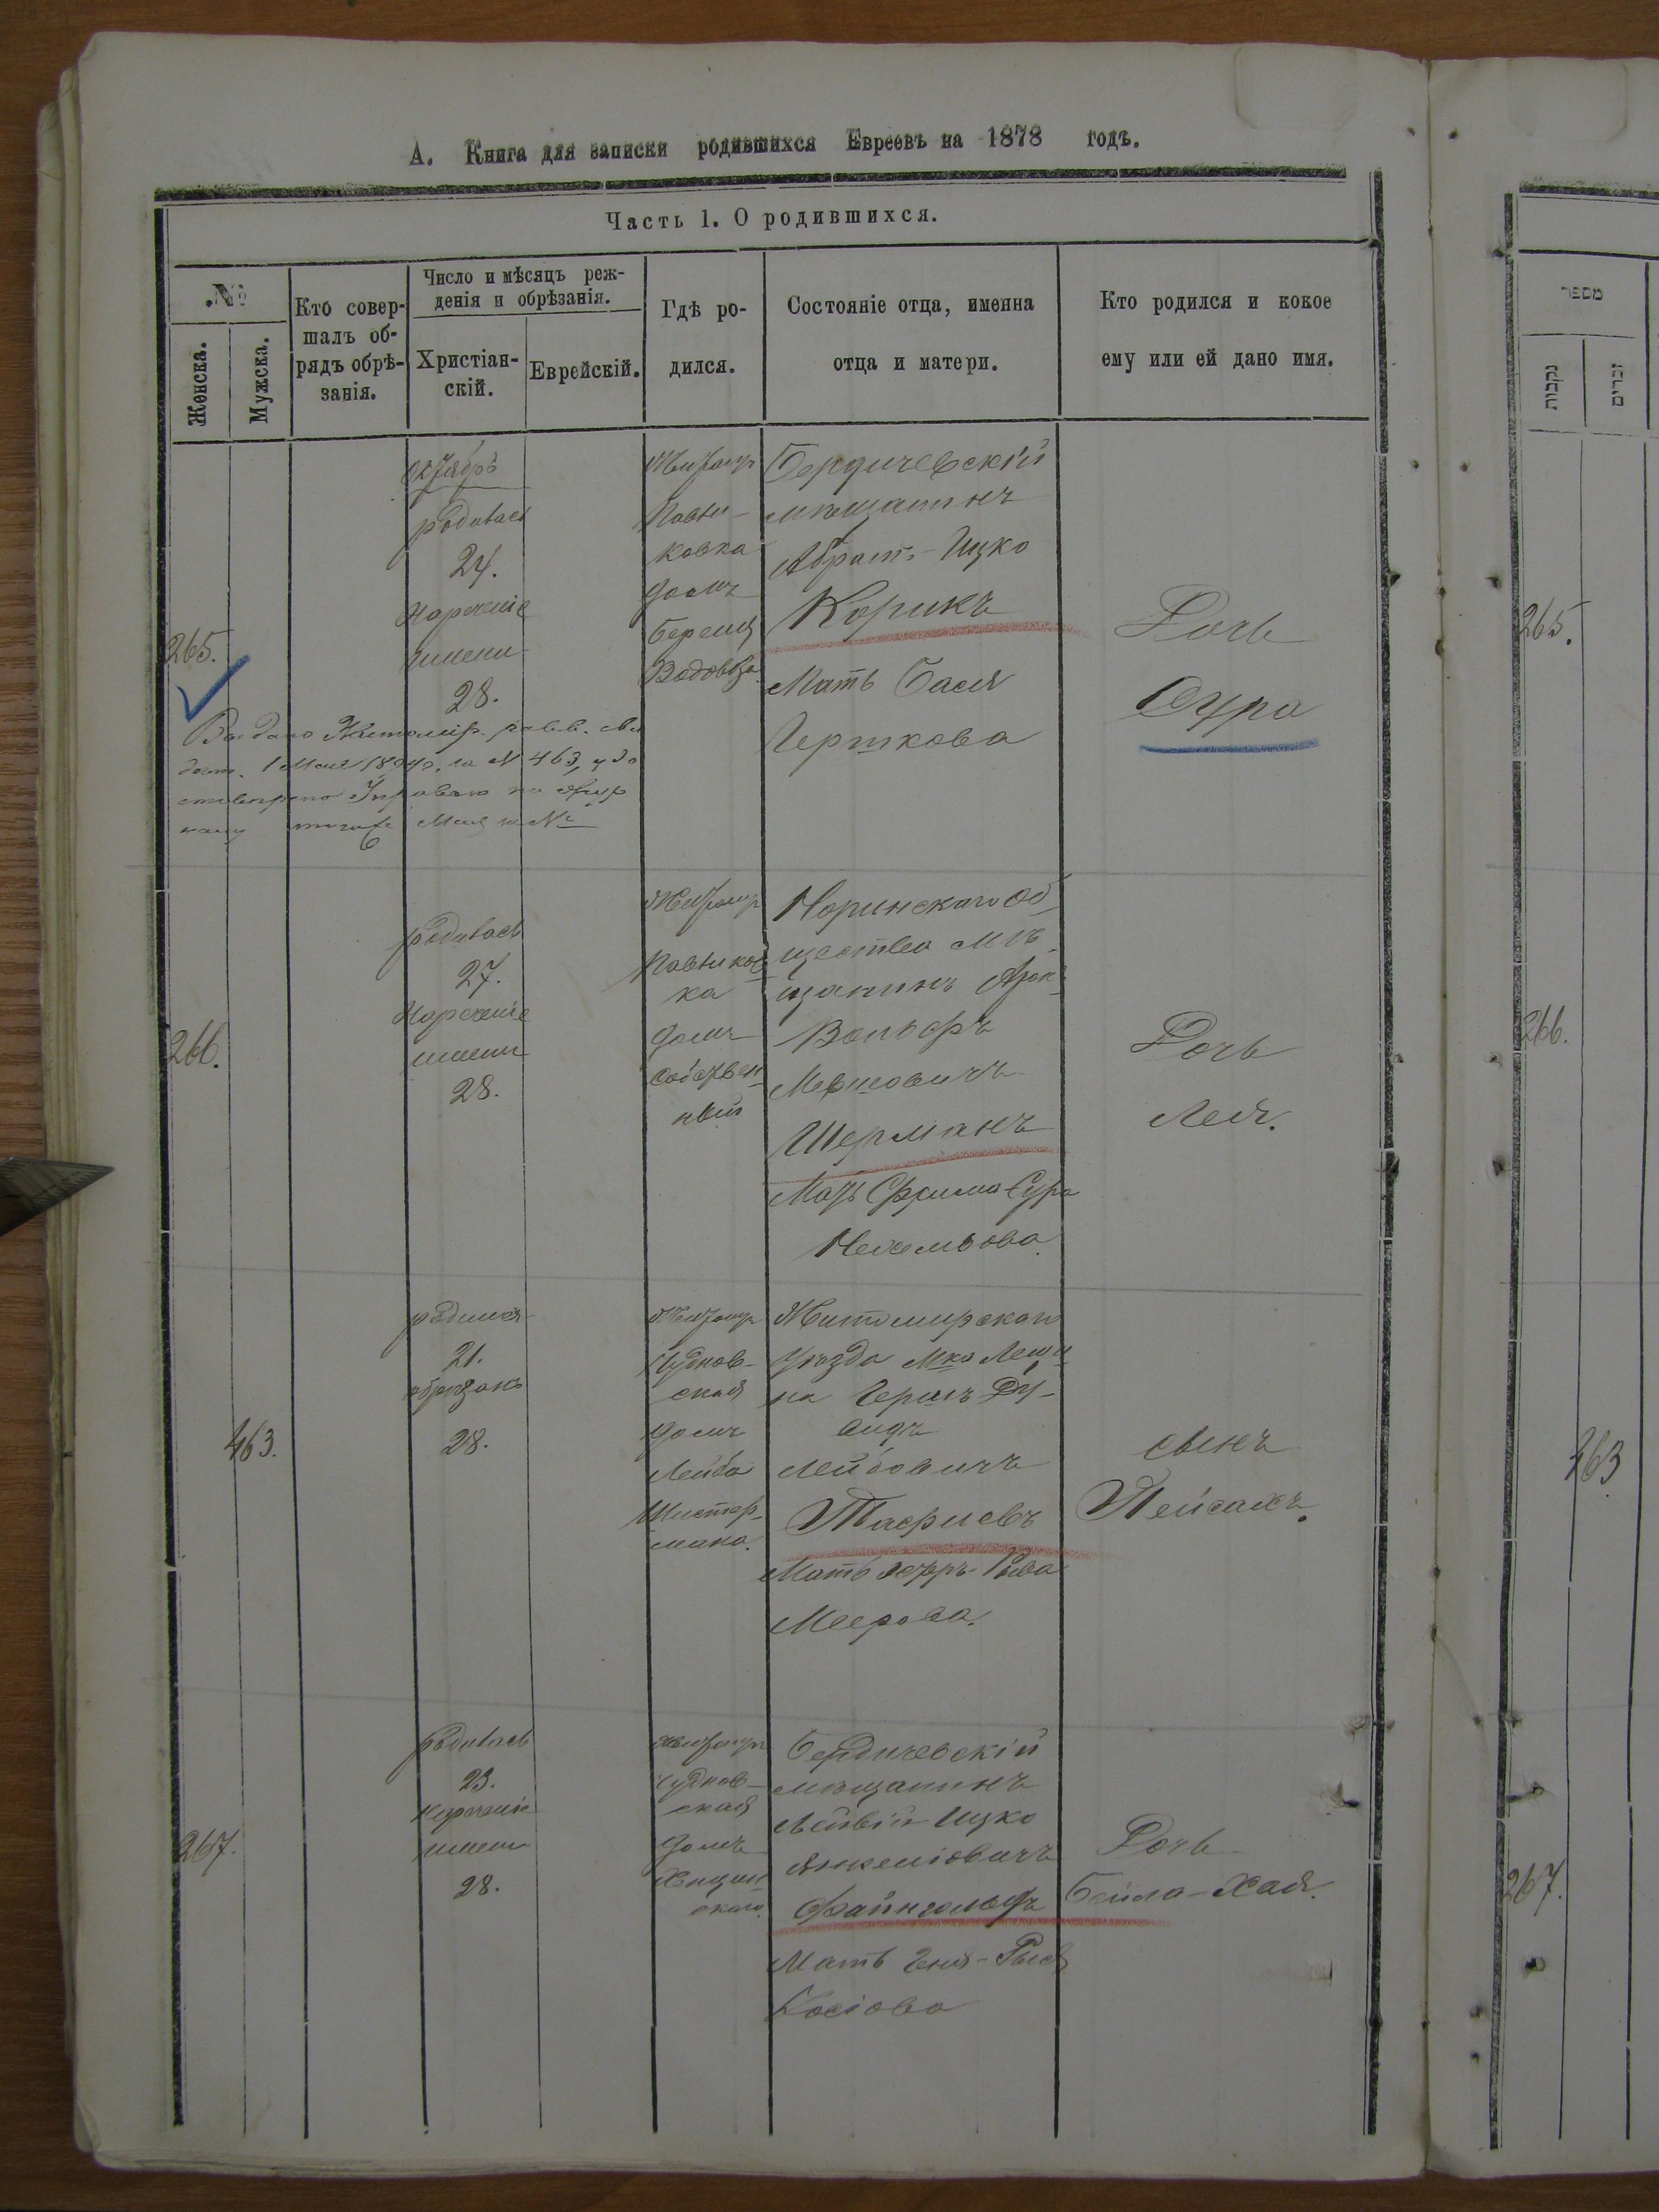 А. Книга для записки родившихся Евреевъ на 1878 годъ.
Часть 1. О родившихся.
№
Женска.
Мужска.
Кто совер-
шалъ об-
рядъ обрѣ-
занія.
Число и мѣсяцъ реж-
денія и обрѣзанія.
Христіан-
скій.
Еврейскій.
Гдѣ ро-
дился.
Состояніе отца, именна
отца и матери.
Кто родился и кокое
ему или ей дано имя.
265.
Октябрь
родилась
24.
Нареченіе
имени
28.
Житомир
Павли-
ковка
домъ
Бердичевскій
мѣщанинъ
Абрам-Ицко
Корикъ
Мать Бася
Гершкова
Дочь
Сура
1 Мая № 463,
266.
родилась
27.
Нареченіе
имени
28.
Житомир
Павликов
ка
домъ
собствен
ный
Норинскаго об
щества мѣ
щанинъ Арон
Вольфъ
Мевшовичъ
Шерманъ
Мать Фрима-Сура
Дочь
Лея.
463.
родился
21.
обрѣзанъ
28.
Житомир
Чуднов-
ская
домъ
Лейба
Шистер-
мана.
Житомирскаго
уѣзда Мка Лещи
на Гершъ Ду-
видъ
Лейбовичъ
Мать Рива
Меерова.
сынъ
Пейсахъ.
267.
родилась
23.
Нареченіе
имени
28.
Житомир
Чуднов-
ская
домъ
Бердичевскій
мѣщанинъ
Лейвій-Ицко
Янкеліовичъ
Файнгольдъ
Мать Геня-Рыся
Дочь
Бейла-Хая.
מספר
נקבות
זכרים
265.
266.
463
267.